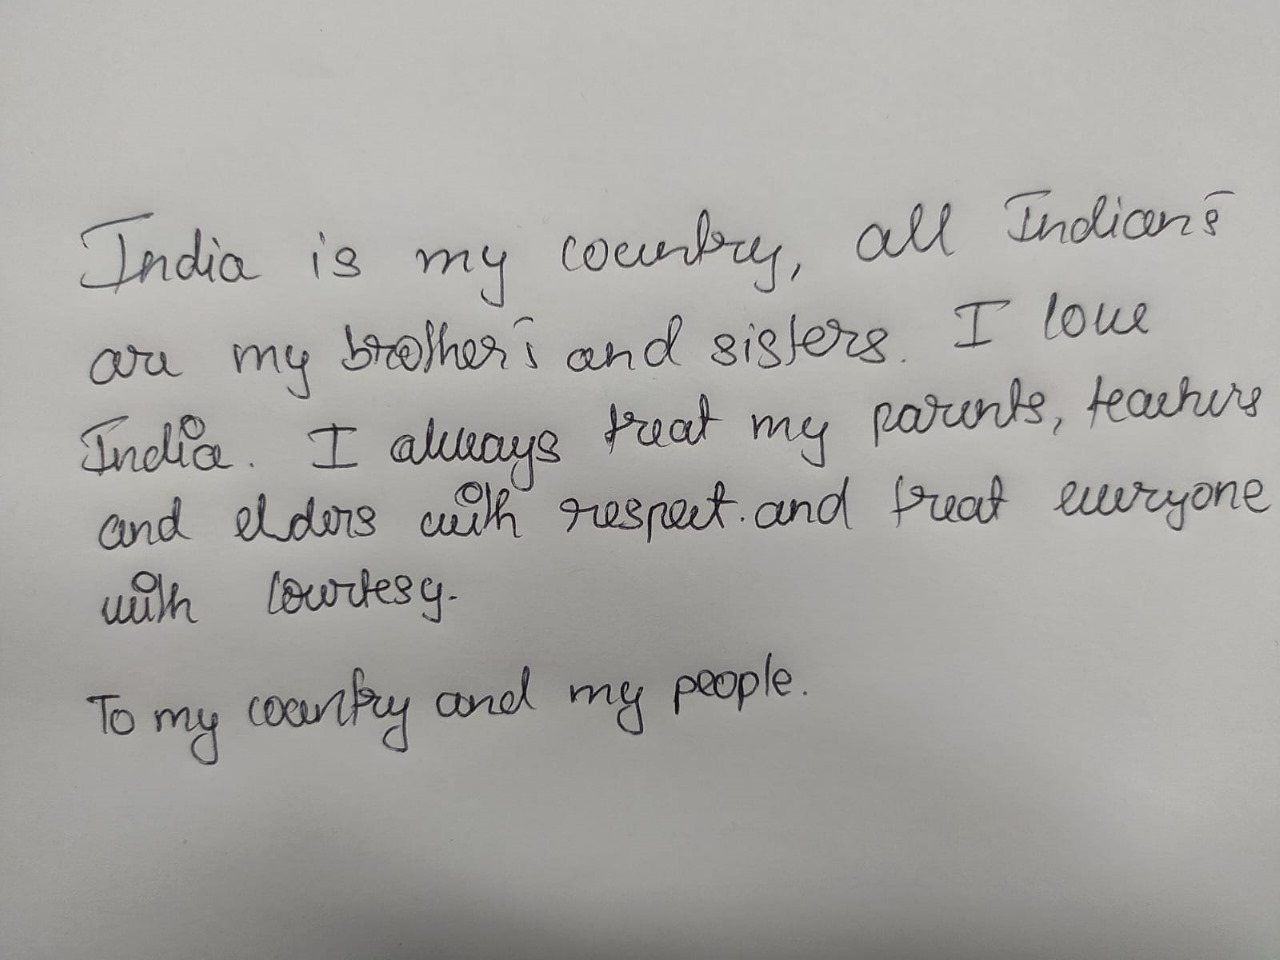 India is my country, all Indian's
are my brother's and sisters. I love
India. I always treat my parents, teachers
and elders with respect. and treat everyone
with courtesy.
To my country and my people.